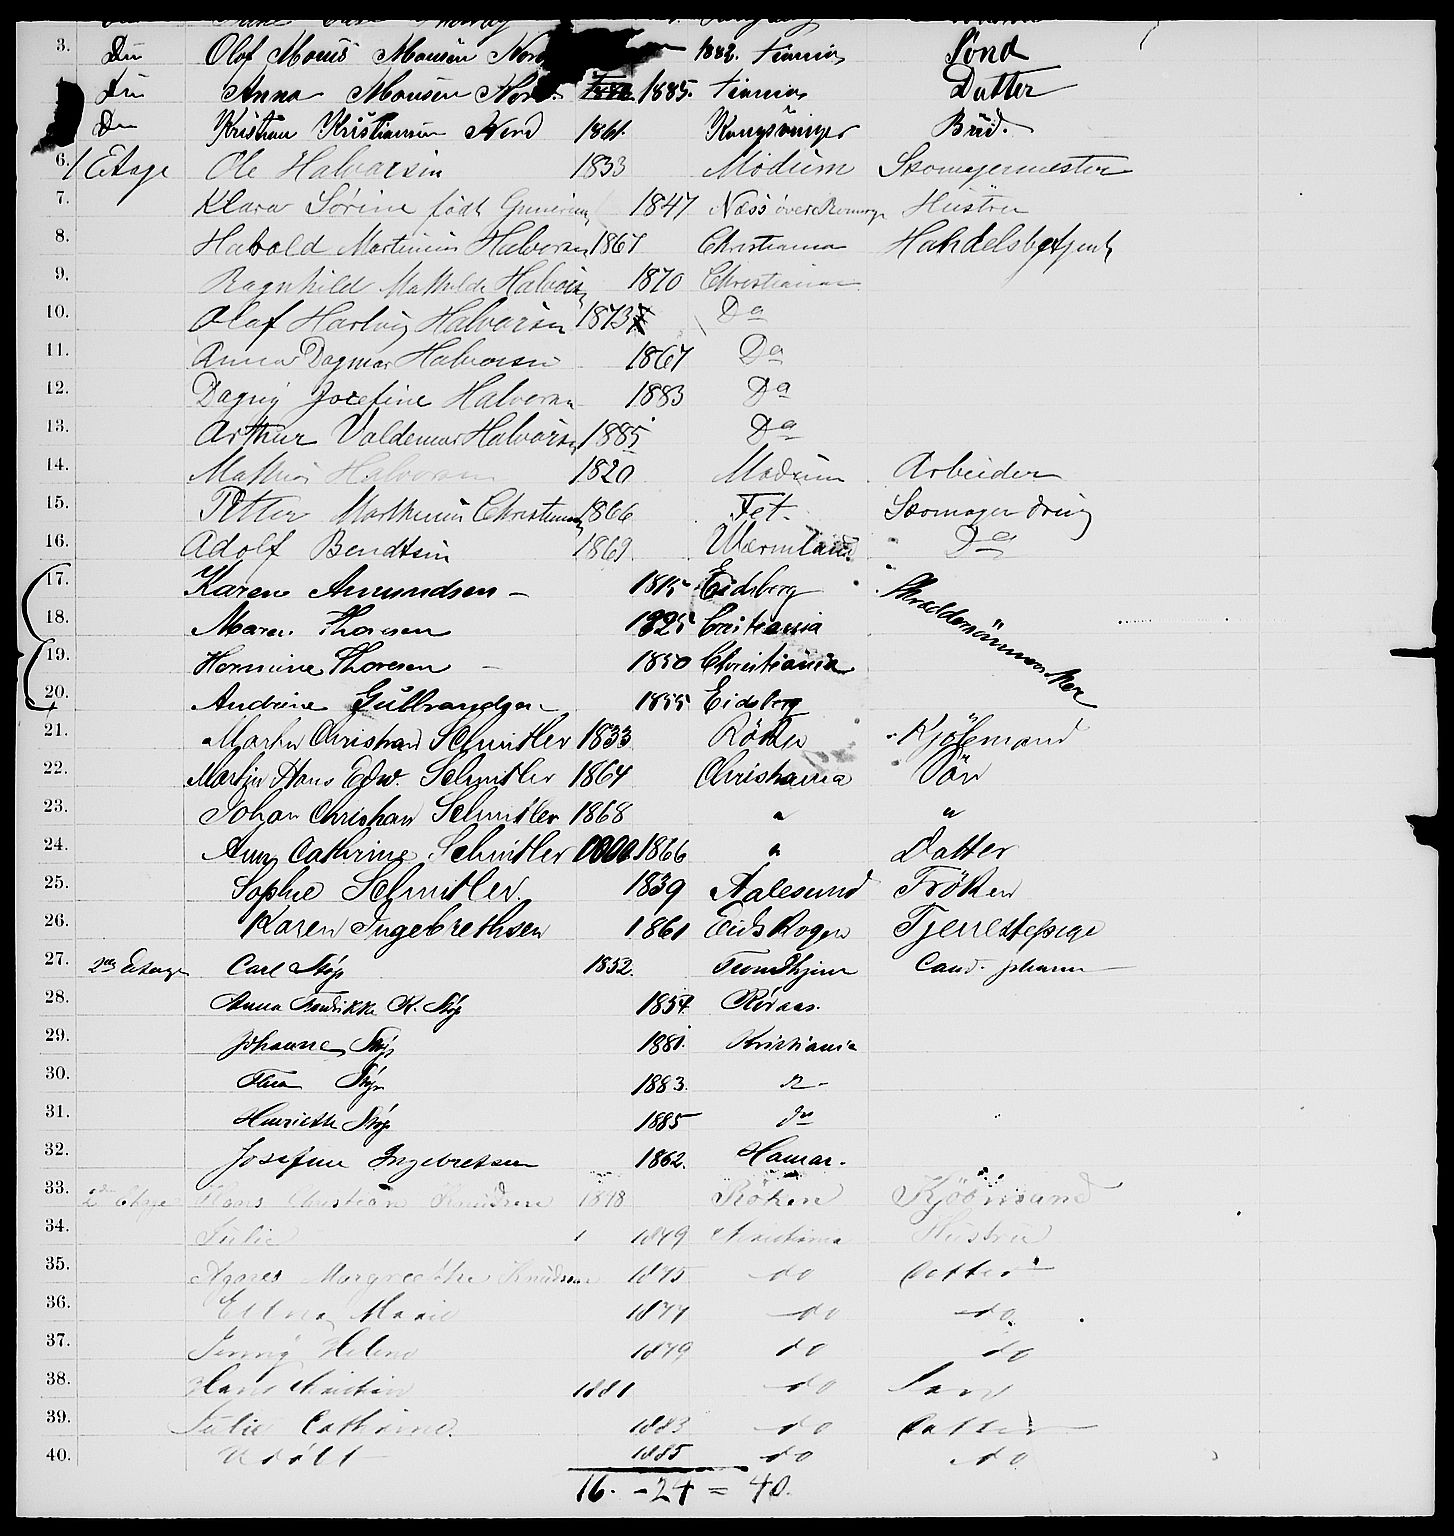 3. Do Olaf Monsen Nord 1882. Tiania Sönd
Do Anna Monsen Nord. 1885. Tiania Datter
Do Kristian Kristiansen Nord 1861. Kongsvinger Bud.
6. 1 Etage Ole Halvorsen 1833 Modum Skomagermester
7. Klara Sörine født 1847 Næss Hustru
8. Harald Martinius Halvorsen 1867 Christiania Handelsbetjent
9. Ragnhild Mathilde Halvorsen 1870 Christiania
10. Olaf Hartvig Halvorsen 1873 Do
11. Anna Dagmar Halvorsen 1867 Do
12. Dagny Josefine Halvorsen 1883 Do
13. Arthur Valdemar Halvorsen 1885 Do
14. Mathias Halvorsen 1820 Modum Arbeider
15. Petter Marthinius Christiansen 1866 Fet. Skomager dreng
16. Adolf Bendtsen 1869 Wærmland Do
17. Karen Amundsen - 1815 Eidsberg
18. Maren Thoresen 1825 Cristiania
19. Hermine Thoresen - 1850 Christiania
20. Andrine Gulbrandsen - 1855 Eidsberg
21. Martin Christian Schnitler 1833 Röken Kjöbmand
22. Martin Hans Edw. Schnitler 1864 Christiania Sön
23. Johan Christian Schnitler 1868 " "
24. Anna Cathrine Schnitler 1866 " Datter
25. Sophie Schnitler. 1839 Aalesund Fröken
26. Karen Ingebrethsen 1861 Eidskogen Tjenestepige
27. 2den Etage Carl 1852. Trondhjem Cand. pharm
28. Anna Fredrikke K. 1854. Röraas.
29. Johanne 1881. Kristiania
30. 1883. do
31. Henriette 1885 do
32. Josefine Ingebretsen 1862. Hamar.
33. 2den Etage Hans Christian Knudsen 1848 Röken Kjöbmand
34. Julie 1849 Kristiania Hustru
35. Agnes Margrethe Knudsen 1875 do Datter
36. Ellna Marie 1877 do do
37. Jenny Helene 1879 do do
38. Hans Kristian 1881 do Sön
39. Julie Cathrine. 1883 do Datter
40. Udöbt 1885 do do
16. - 24 = 40.